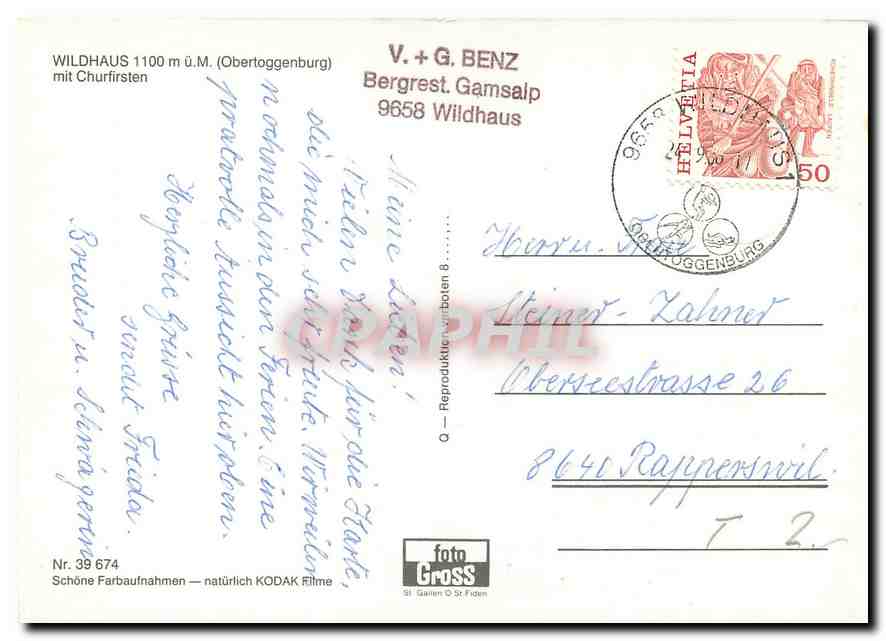 WILDHAUS 1100 m ü.M. (Obertoggenburg)
mit Churfirsten
V. + G. BENZ
Bergrest. Gamsalp
9658 Wildhaus
HELVETIA
50
9658 WILDHAUS 1
OBERTOGGENBURG
Meine Lieben!
Vielen Dank für die Karte,
die mich sehr freute. Wir weilen
nochmals in den Ferien. Eine
pratvolle Aussicht hier oben.
Herzliche Grüsse
sendet Frieda.
Bruder u. Schwägerin
Herr u. Frau
Steiner-Zahner
Oberseestrasse 26
8640 Rapperswil.
T 2.
Q — Reproduktion verboten 8
CPAPHIL
Nr. 39 674
Schöne Farbaufnahmen — natürlich KODAK Filme
foto
GROSS
St. Gallen O St. Fiden